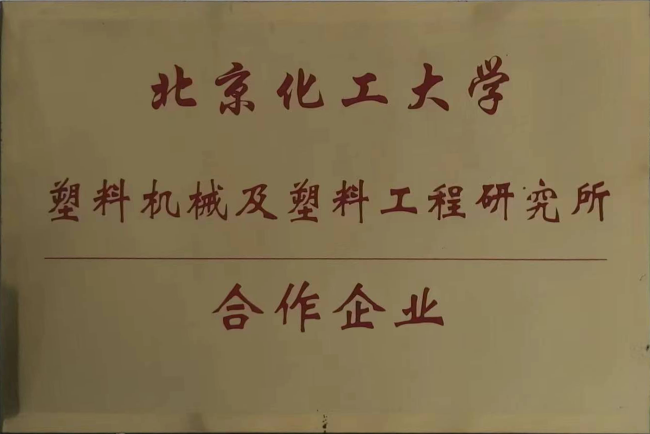 北京化工大学
塑料机械及塑料工程研究所
合作企业